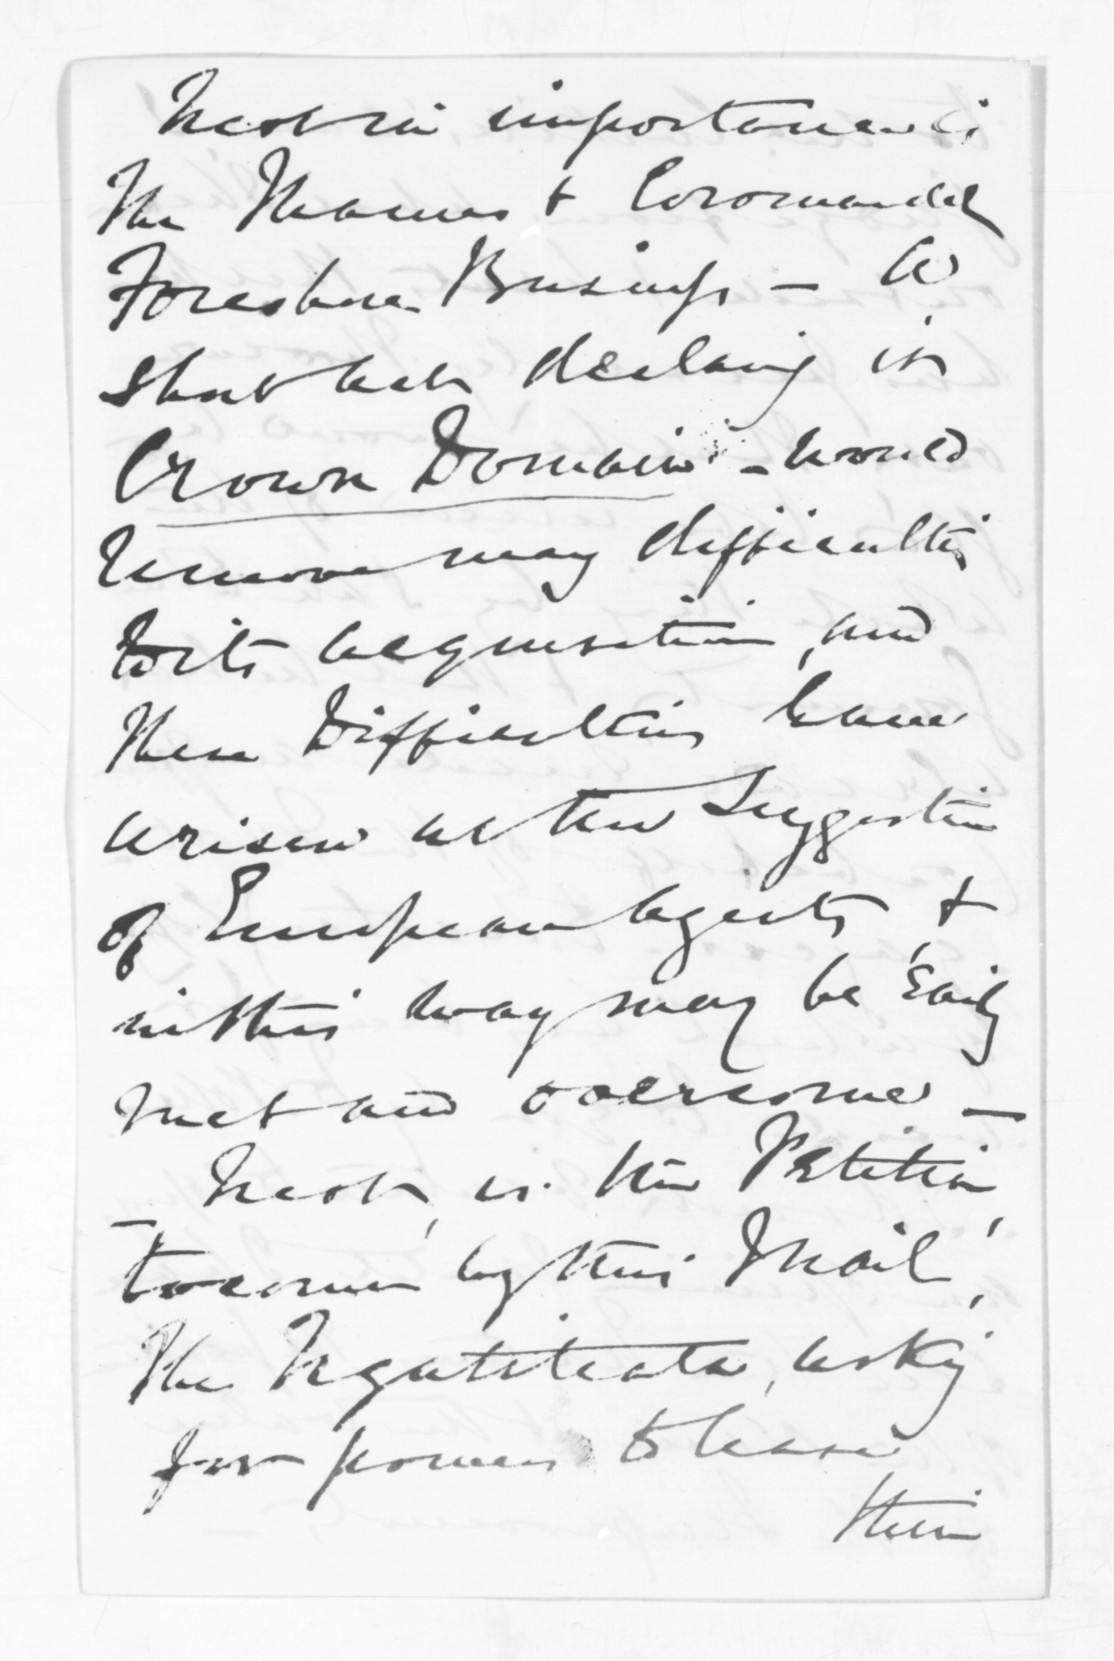 Next in importance is
the Thames & Coromandel
Foreshore Business — a
short act declaring it
Crown Domain — would
remove many difficulties
to its acquisition, and
these Difficulties have
arisen at the Suggestion
of European agents, &
in this way may be Easily
met and overcome —
Next, is the Petition,
to come by this Mail,
the Ngatiteata, asking
for power to lease
their